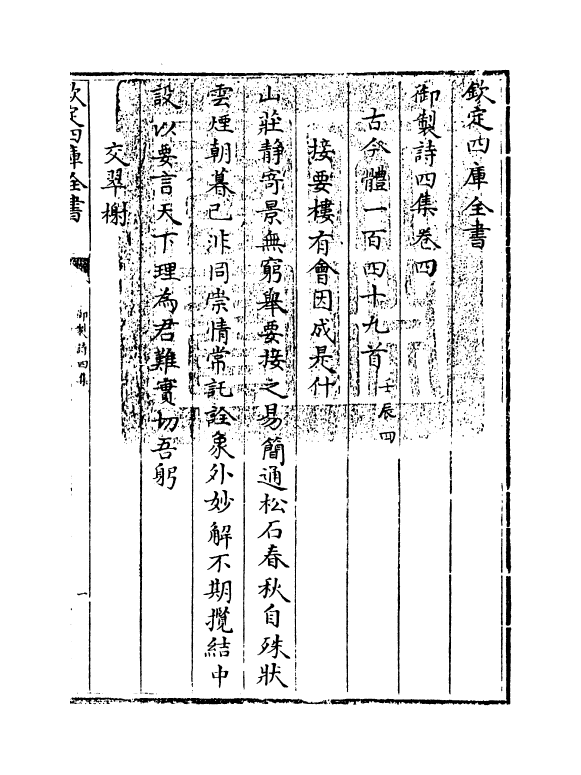 欽定四庫全書
御製詩四集卷四
古今體一百四十九首壬辰四
接要樓有會因成是什
山莊靜寄景無窮舉要接之易簡通松石春秋自殊狀
雲煙朝暮已非同崇情常託詮象外妙解不期攬結中
設以要言天下理為君難實切吾躬
交翠榭
欽定四庫全書
御製詩四集
一